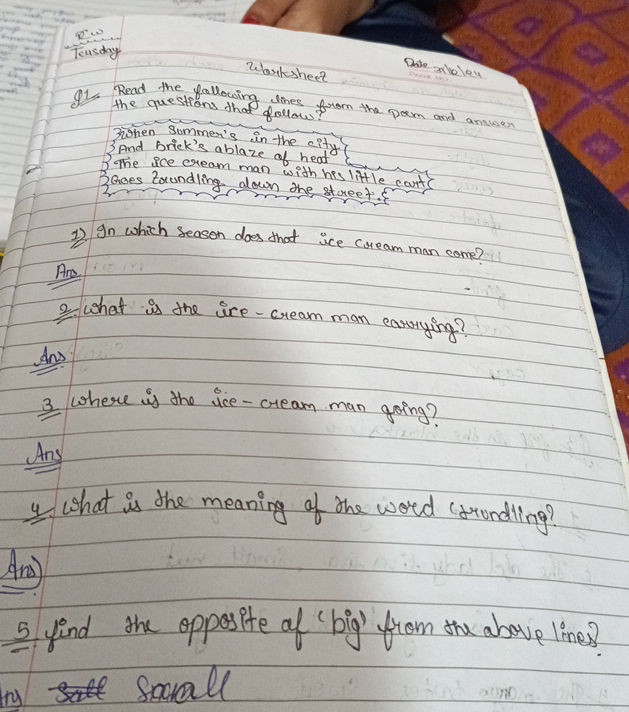 R.W
Teusday
Worksheet
Date
Q1. Read the following lines from the poem and answer
the questions that follow?
When summer's in the city
And brick's ablaze of heat
The ice cream man with his little cart
Goes trundling down the street.
1). In which season does that ice cream man come?
Ans
2. What is the ice-cream man carrying?
Ans
3 Where is the ice-cream man going?
Ans
4 What is the meaning of the word (trundling?
Ans)
5 find the opposite of 'big' from the above lines?
small